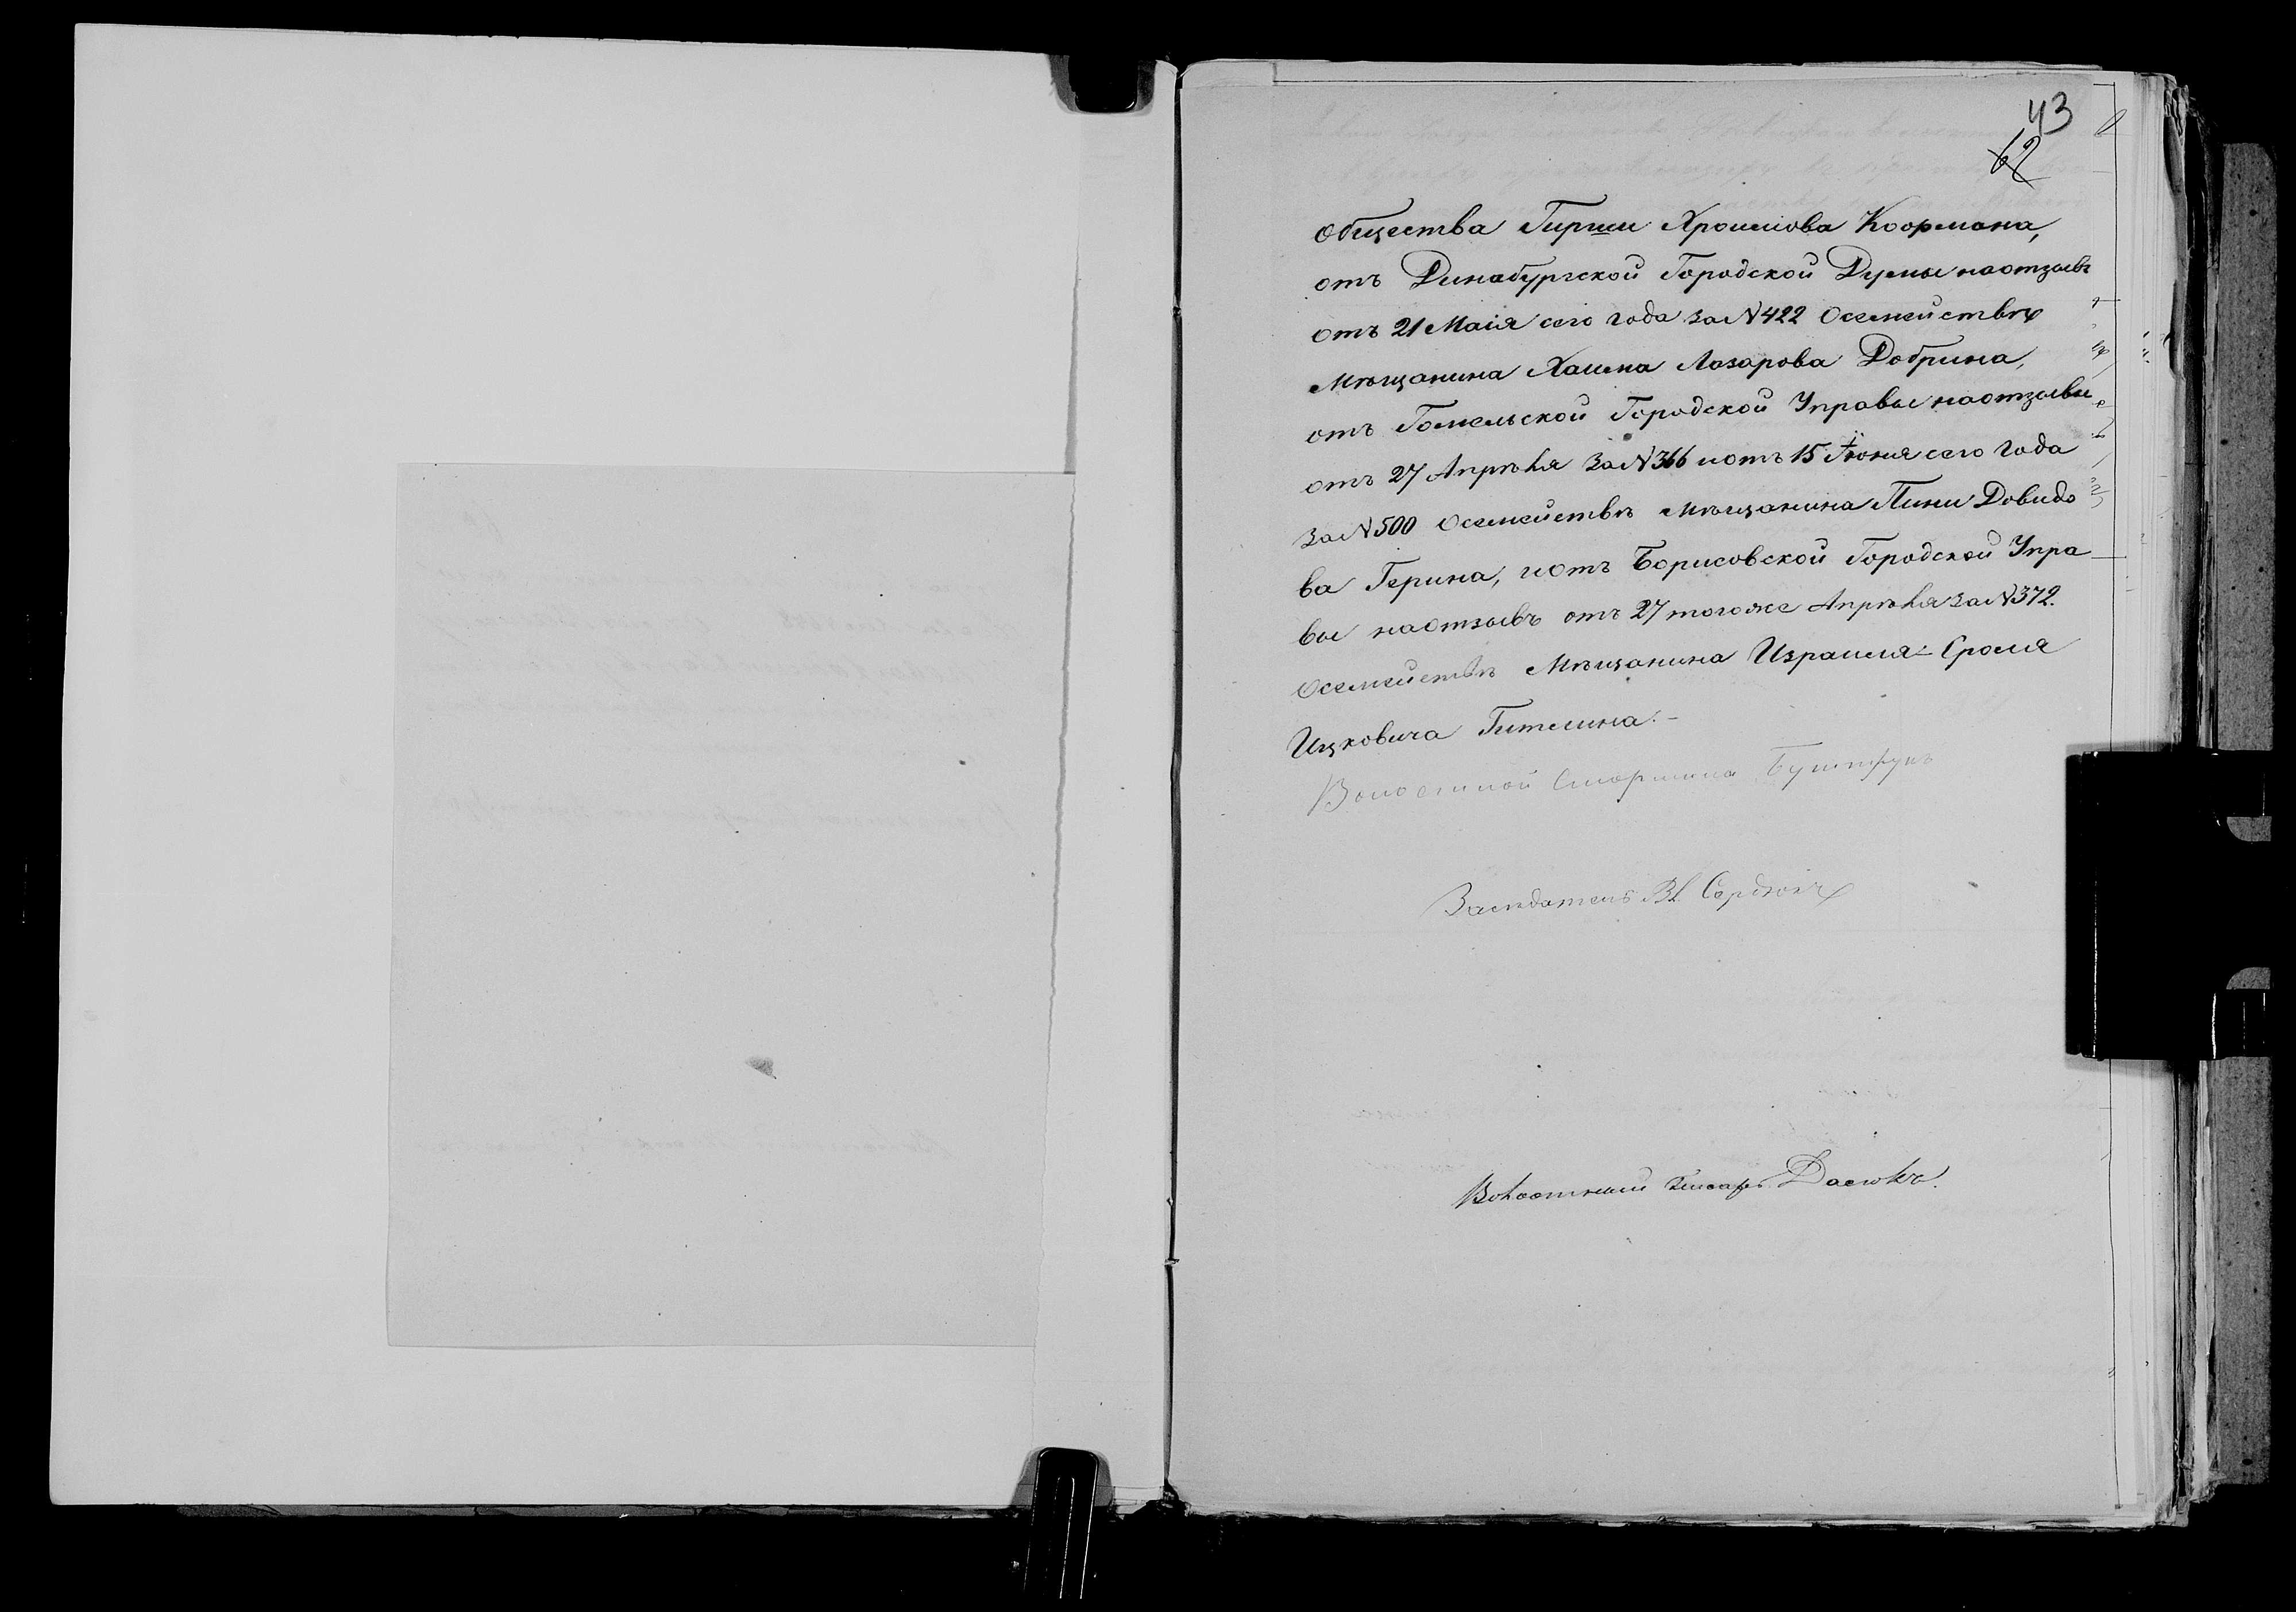 43
62
общества Гирши Хроимова Коормана,
отъ Динабургской Городской Думы наотзывъ
отъ 21 Маія сего года за N 422 Осемействѣ
Мѣщанина Хаима Лазарова Добрина,
отъ Гомельской Городской Управы наотзывы
отъ 27 Апрѣля За N 366 иотъ 15 Іюня сего года
за N 500 Осемействѣ Мѣщанина Пини Довидо
ва Герина, иотъ Борисовской Городской Упра
вы наотзывъ отъ 27 тогоже Апрѣля за N 372.
Осемействѣ Мѣщанина Израиля-Сроля
Ицковича Гителина.-
Волостной Старшина
Засѣдатель Вл Сердюкъ
Волостный Писарь Даюкъ.